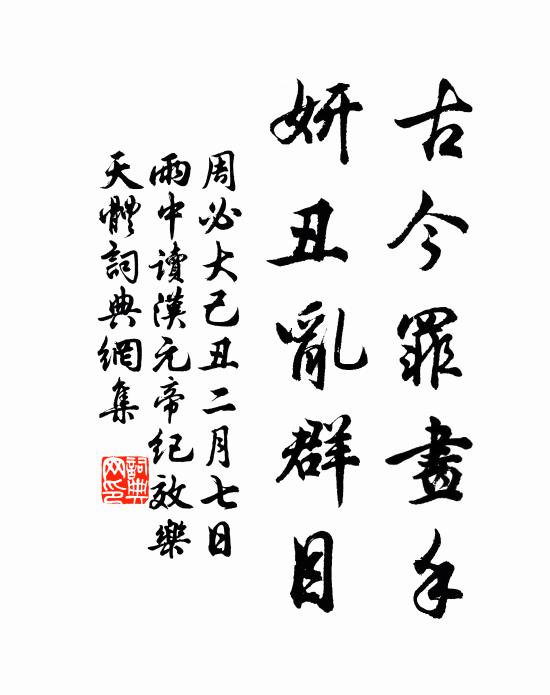 古今罪畫手
妍丑亂群目
周必大己丑二月七日
雨中讀漢元帝紀效樂
天體詞典網集
詞典網印